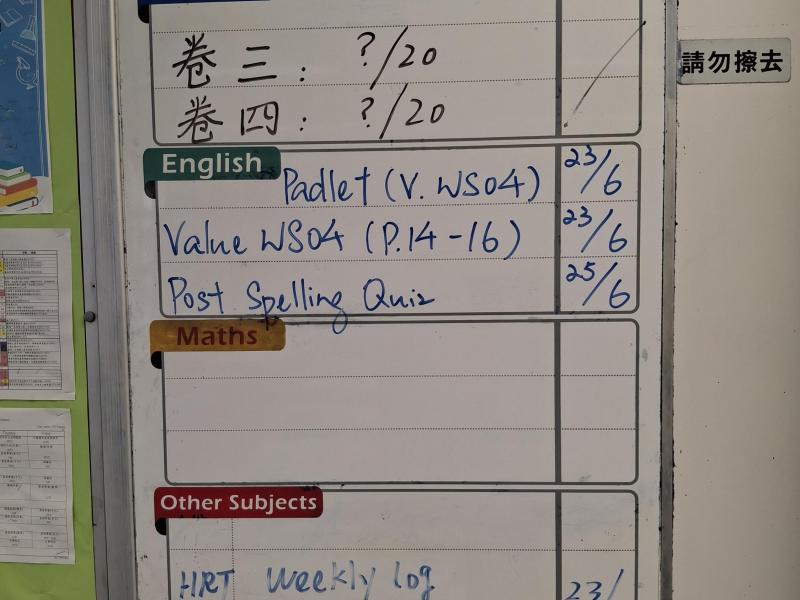 卷三： ?/20
卷四： ?/20
請勿擦去
English
Padlet (V. WS04) 23/6
Value WS04 (P.14-16) 23/6
Post Spelling Quiz 25/6
Maths
Other Subjects
HRT Weekly log 23/